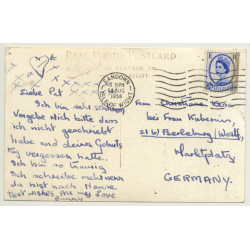 REAL PHOTO POSTCARD
SANDOWN
ISLE OF WIGHT
AUG
1959
Liebe Pat
Ich bin sehr
Vergebe mich bitte dass
ich nicht geschriebt
habe und deinen Geburts
tag vergessen hatte.
Ich bin so traurig
Ich schreibe mehr wenn
du bist nach Hause
Best wishes, All my love
Frau Christiane
bei Frau
21b Berleburg/Westf.
Marktplatz
GERMANY.